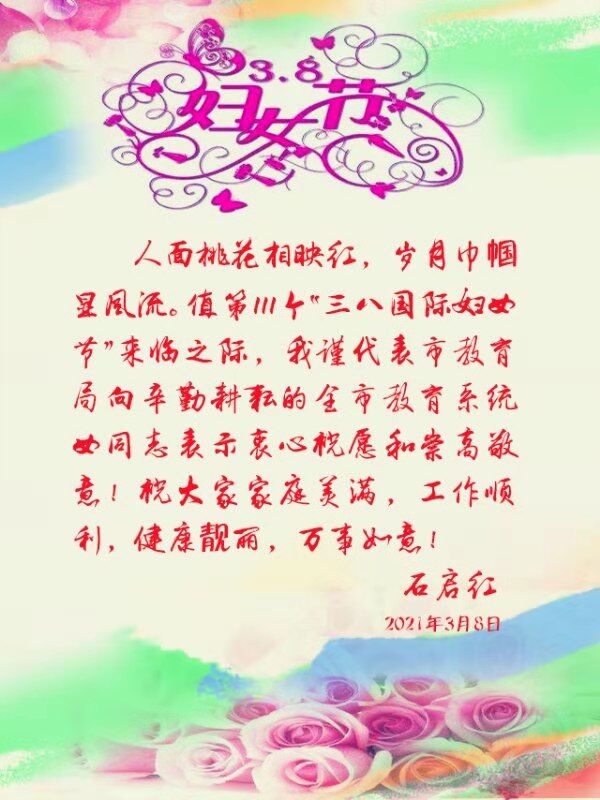 3.8
妇女节
人面桃花相映红，岁月巾帼
显风流。值第111个“三八国际妇女
节”来临之际，我谨代表市教育
局向辛勤耕耘的全市教育系统
女同志表示衷心祝愿和崇高敬
意！祝大家家庭美满，工作顺
利，健康靓丽，万事如意！
石启红
2021年3月8日